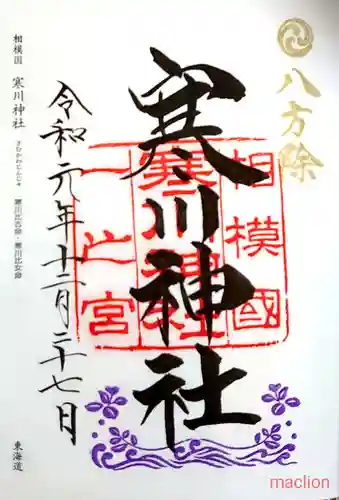 八方除
寒川神社
相模國
寒川神社
一之宮
令和元年十二月二十七日
相模国 寒川神社 さむかわじんじゃ 寒川比古命・寒川比女命
東海道
maclion